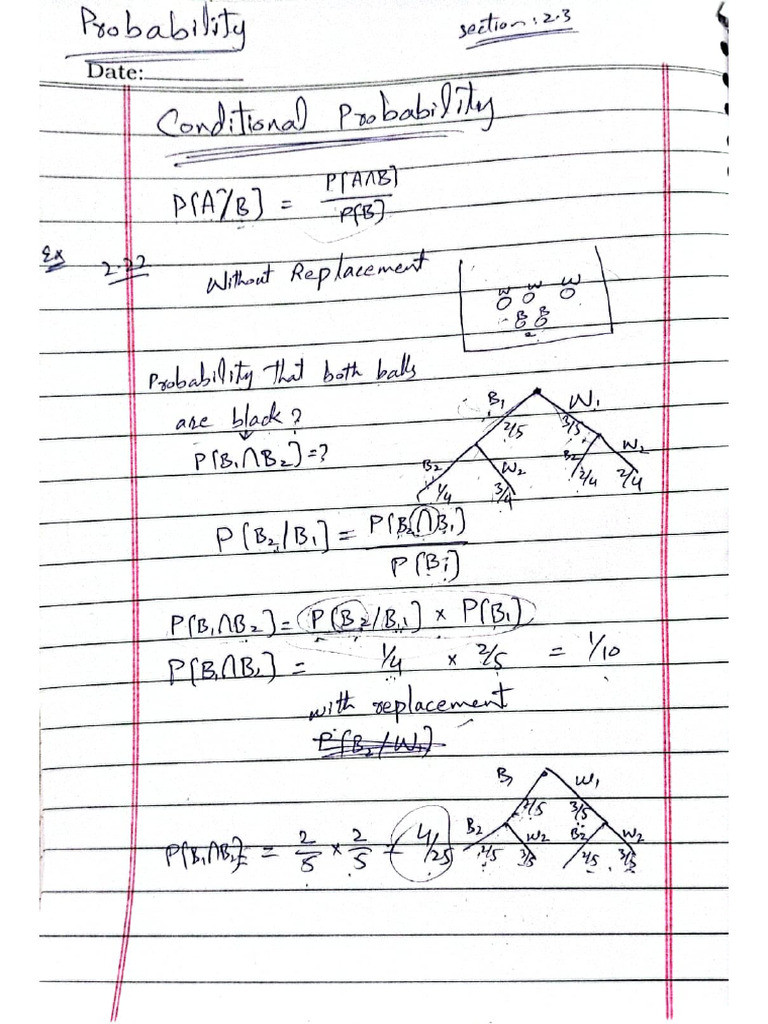 Probability
section: 2.3
Date:
Conditional Probability
P[A/B] = P[A∩B] / P[B]
Ex 2.22 Without Replacement
W W W
B B
Probability that both balls
are black?
P[B₁∩B₂]=?
B₁ W₁
2/5 3/5
B₂ W₂ B₂ W₂
1/4 3/4 2/4 2/4
P[B₂/B₁] = P[B₂∩B₁] / P[B₁]
P[B₁∩B₂] = P[B₂/B₁] × P[B₁]
P[B₁∩B₂] = 1/4 × 2/5 = 1/10
with replacement
P[B₂/W₁]
B₁ W₁
2/5 3/5
B₂ W₂ B₂ W₂
2/5 3/5 2/5 3/5
P[B₁∩B₂] = 2/5 × 2/5 = 4/25